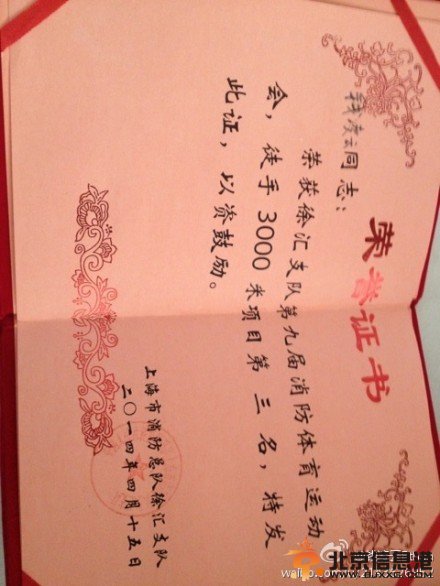 荣誉证书
钱凌云同志：
荣获徐汇支队第九届消防体育运动
会，徒手3000米项目第三名，特发
此证，以资鼓励。
上海市消防总队徐汇支队
二〇一四年四月十五日
北京信息港